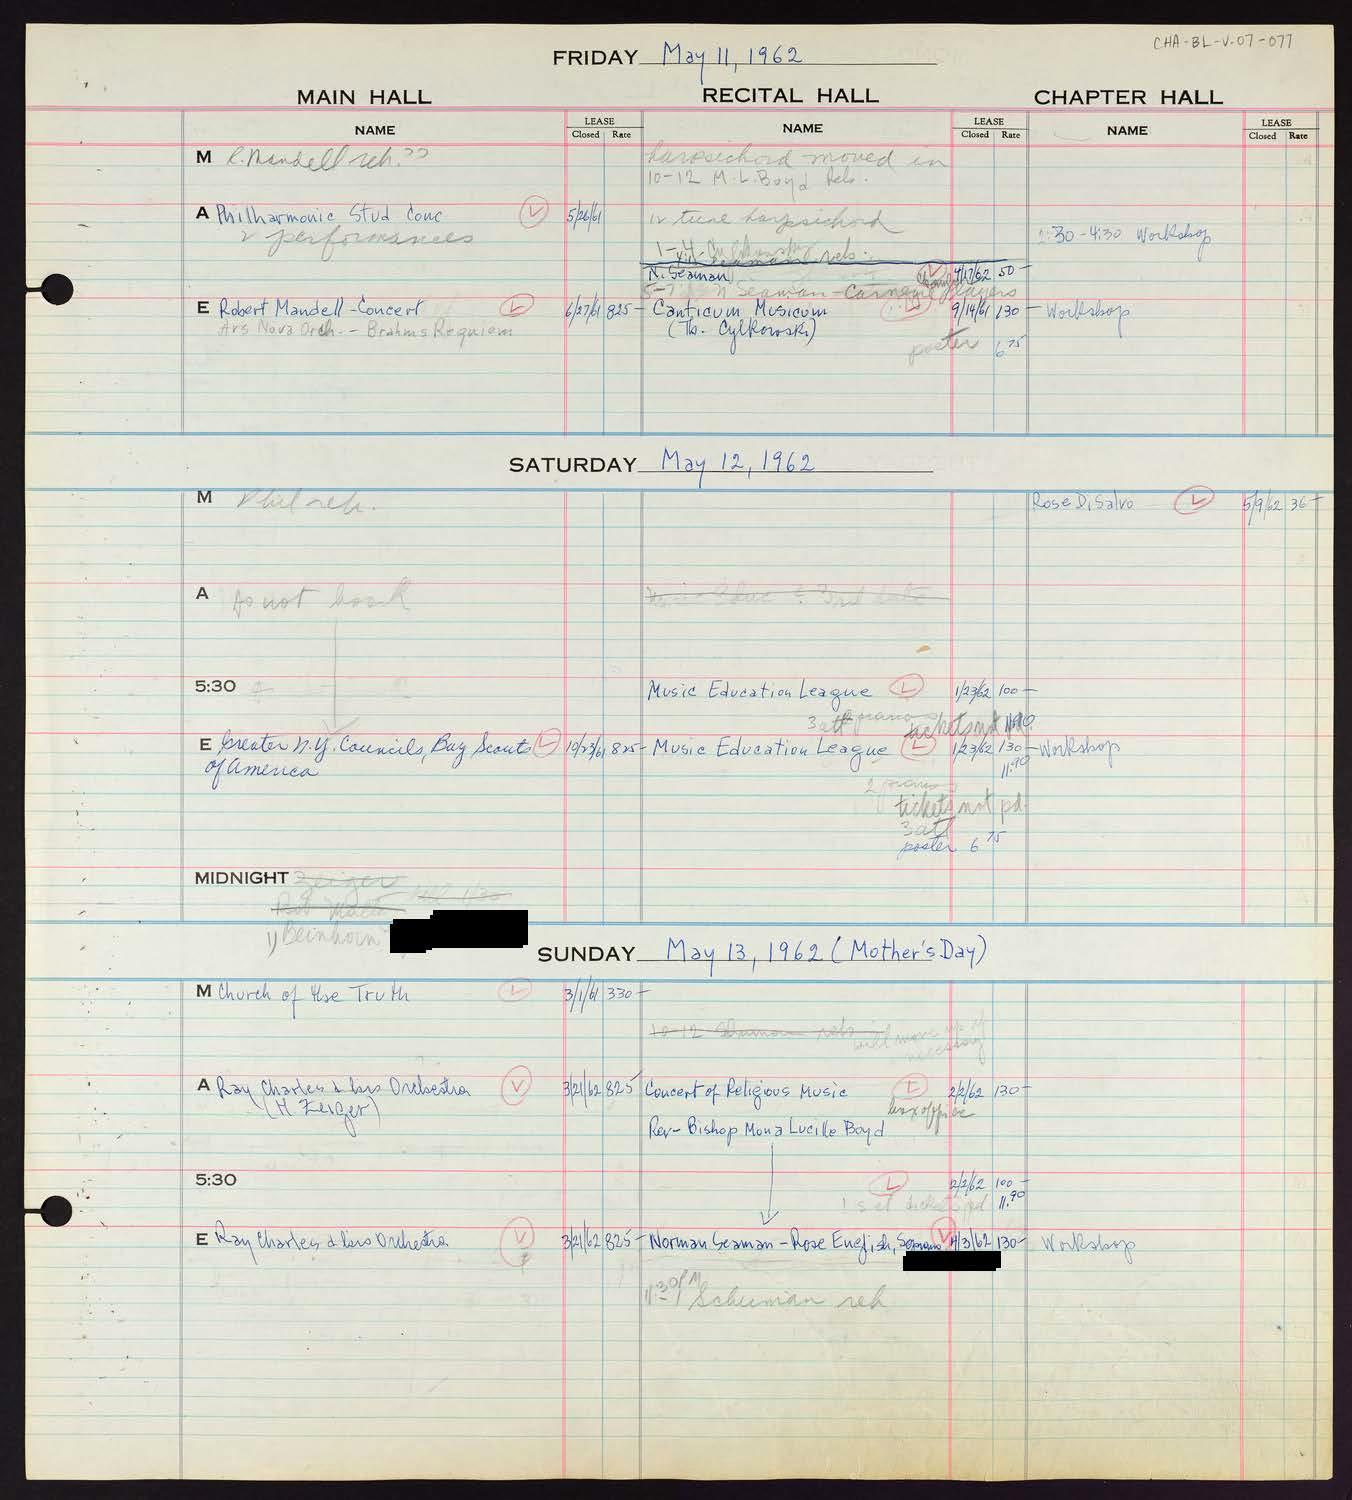 CHA-BL-V-07-077
FRIDAY May 11, 1962
MAIN HALL
RECITAL HALL
CHAPTER HALL
NAME LEASE Closed Rate
NAME LEASE Closed Rate
NAME LEASE Closed Rate
M R. Mandell reh. ??
harpsichord moved in
10-12 M.L. Boyd Reh.
A Philharmonic Stud Conc L 5/26/61
2 performances
12 tune harpsichord
1-4 Cylkowski reh.
1:30-4:30 Workshop
N. Seaman L 4/17/62 50-
5-7 N Seaman - Carnegie Players
E Robert Mandell - Concert L 6/27/61 825-
Ars Nova Orch. - Brahms Requiem
Canticum Musicum L 9/14/61 130-
(Th. Cylkowski)
poster 6 75
Workshop
SATURDAY May 12, 1962
M Phil reh.
Rose DiSalvo L 5/9/62 36-
A Do not book
Music Educ 3rd date
5:30
Music Education League L 1/23/62 100-
3 att 2 pianos tickets not pd. 11.90
E Greater N.Y. Councils, Boy Scouts L 10/23/61 825-
of America
Music Education League L 1/23/62 130-
11.90
Workshop
2 pianos
tickets not pd
3 att
poster 6 75
MIDNIGHT Zeiger
1) Beinhorn
SUNDAY May 13, 1962 (Mother's Day)
M Church of the Truth L 3/1/61 330-
10-12 Schuman reh will move up if
necessary
A Ray Charles & his Orchestra L 3/21/62 825-
(H Zeiger)
Concert of Religious Music L 2/2/62 130-
box office
Rev- Bishop Mona Lucille Boyd
5:30
L 2/2/62 100-
1 set tickets pd 11.90
E Ray Charles & his Orchestra L 3/21/62 825-
Norman Seaman - Rose English, Soprano L 4/3/62 130-
Workshop
11:30 PM
Schuman reh